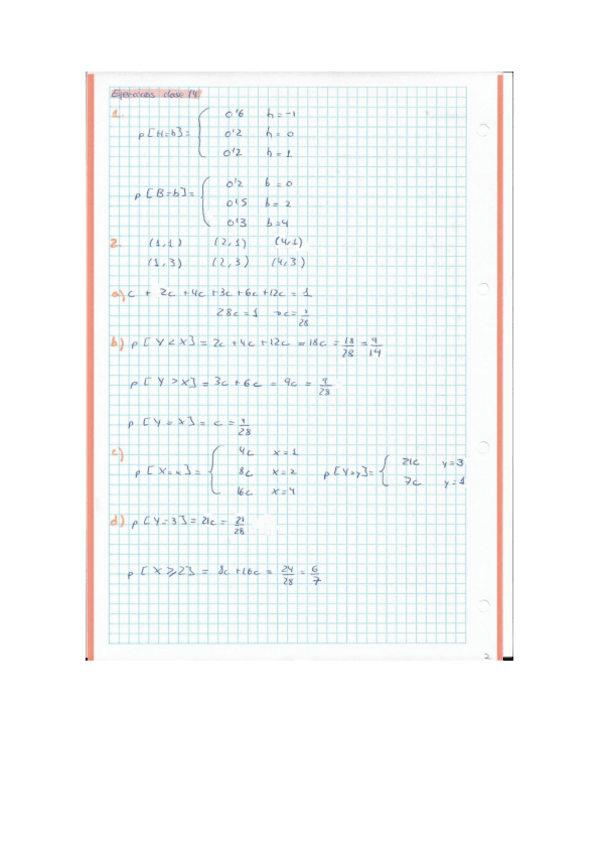 Ejercicios clase 14
1.
p[H=h]= { 0'6 h=-1
0'2 h=0
0'2 h=1
p[B=b]= { 0'2 b=0
0'5 b=2
0'3 b=4
2. (1,1) (2,1) (4,1)
(1,3) (2,3) (4,3)
a) c + 2c +4c +3c +6c +12c = 1
28c=1 → c= 1/28
b) p[Y<X] = 2c +4c +12c = 18c = 18/28 = 9/14
p[Y>X] = 3c + 6c = 9c = 9/28
p[Y=X] = c = 1/28
c)
p[X=x] = { 4c x=1
8c x=2
16c x=4
p[Y=y]= { 21c y=3
7c y=1
d) p[Y=3] = 21c = 21/28
p[X⩾2] = 8c +16c = 24/28 = 6/7
2